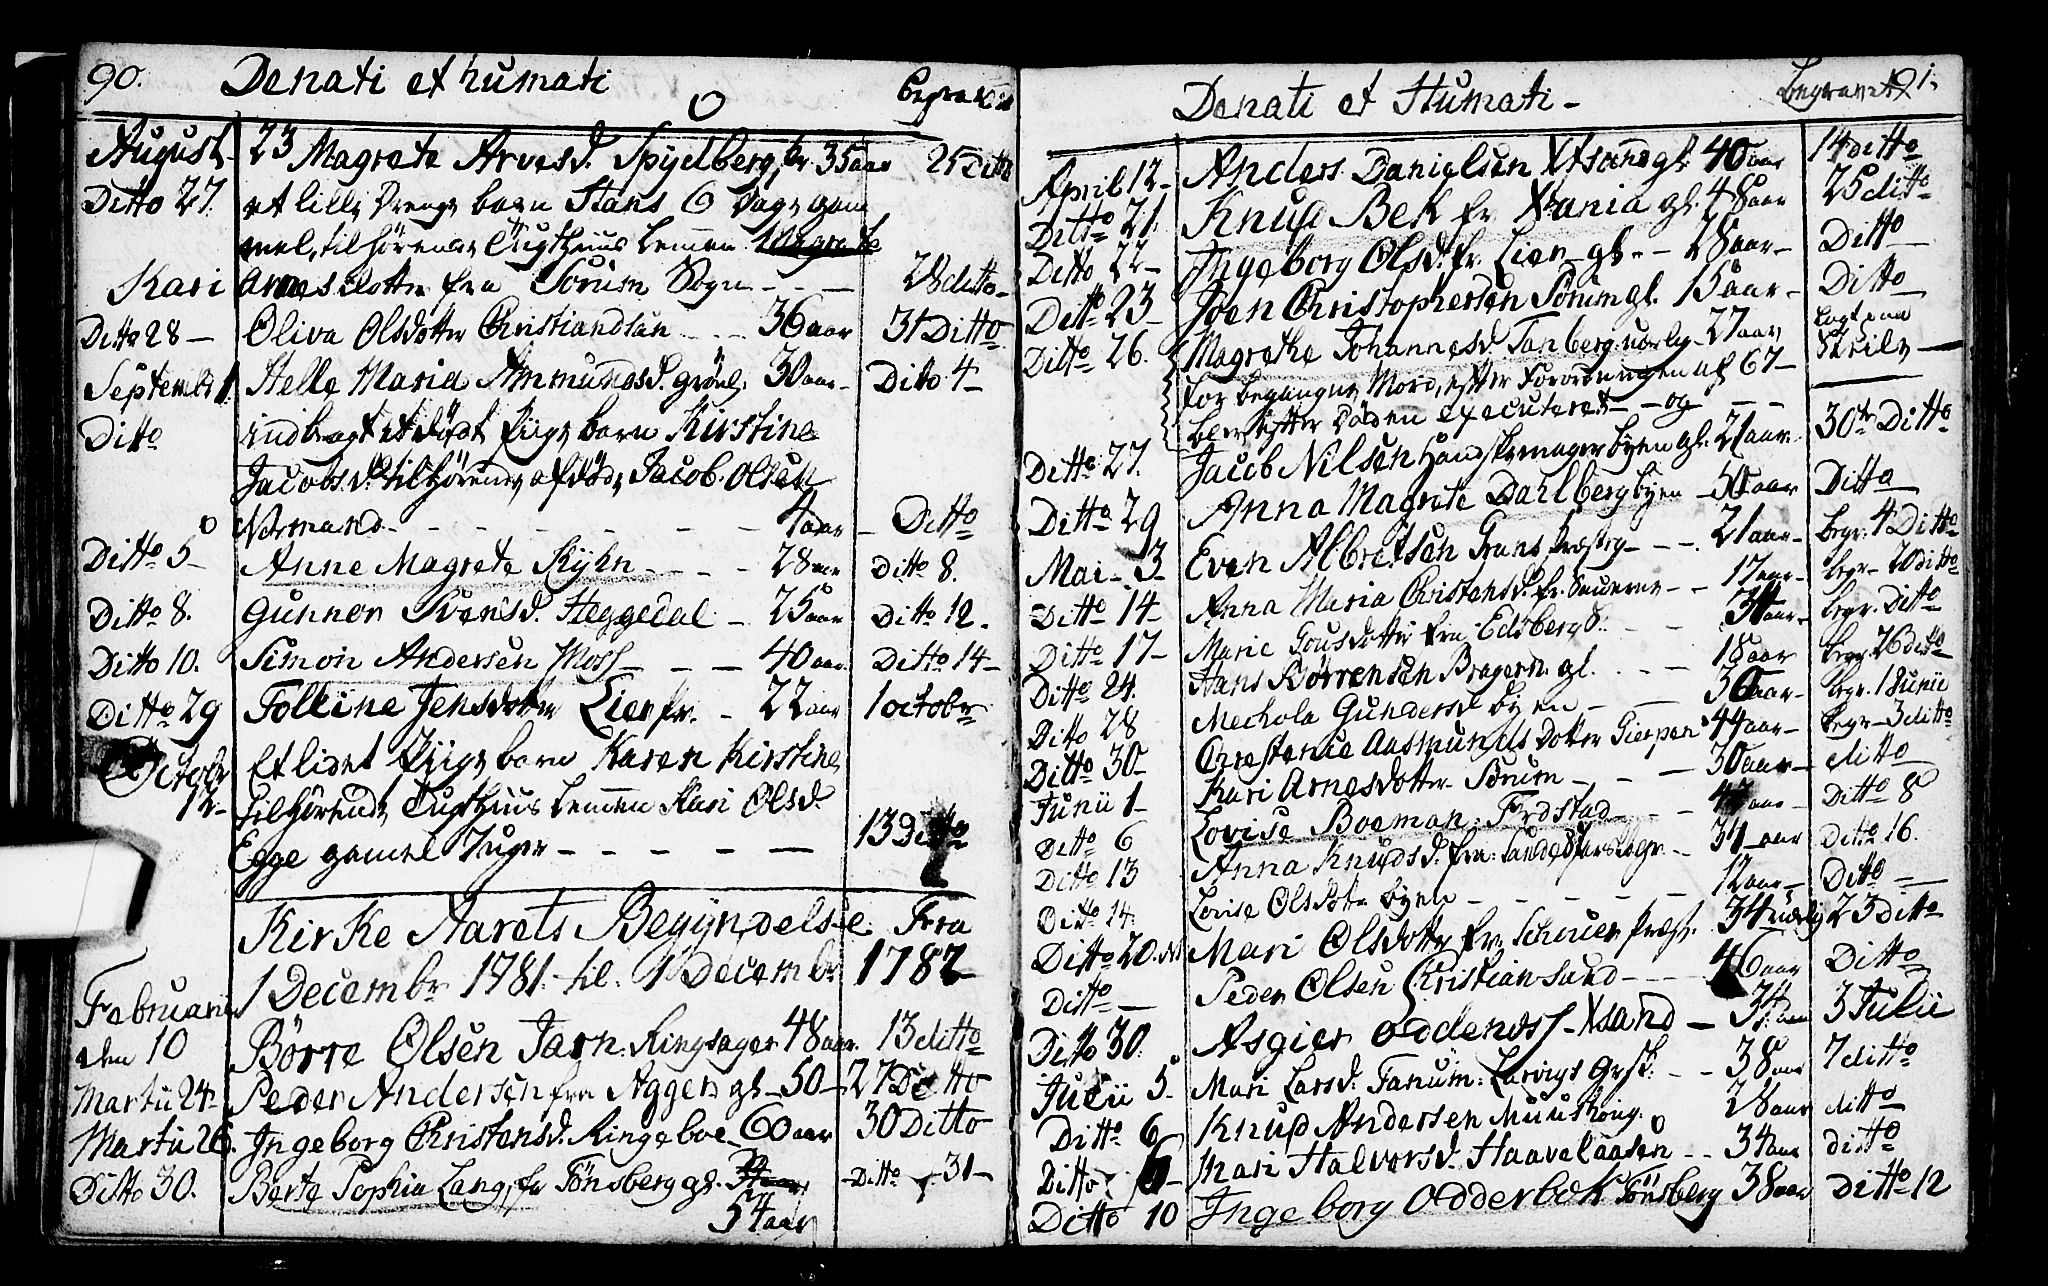 90. Denati et humati
Begraven
August 23 Magrete Arvesd. Spydberg, fr 35 aar 25 Ditto
Ditto 27. et lille Drenge barn Hans 6 Dage gam
mel, tilhørende Tugthuus Lemmen Magrete
Kari Arnesdotter fra Sørum Sogn - - - 28 ditto -
Ditto 28 - Oliva Olsdotter Christiandsan - - 36 aar 31 Ditto
Septembr 1. Helle Maria Ammundsd. 30 aar - Dito 4 -
Ditto indbragt et dödt Piige barn Kirstine
Jacobsd. tilhörende afdöde Jacob Olsen
Normand - - - - - - 4 aar - Ditto
Ditto 5 - Anne Magrete Kyhn - - - - 28 aar Ditto 8.
Ditto 8. Gunner Svensd. Heggedal - 25 aar Ditto 12.
Ditto 10. Simon Andersen Moss - - - 40 aar. Ditto 14 -
Ditto 29 Folline Jensdotter Lier fr. - 22 aar 1 octobr
Octobr 12 - Et lidet Piige barn Karen Kirstine
tilhörende Tugthuus Lemmen Kari Olsd.
Egge gamel 7 uger - - - - - 13 Ditto
Kirke Aarets Begyndelse Fra
1 Decembr 1781. til. 1 Decembr 1782
Februarii den 10 Børre Olsen Ringsager 48 aar. 13 ditto
Martii 24 - Peder Andersen fra Agger gl - 50 - 27 Ditto
Martii 26. Ingeborg Christensd. Ringeboe - 60 aar 30 Ditto
Ditto 30. Berte Sophia Lang, fr Tönsberg gl. - Ditto - 31 -
54 aar
Denati et Humati -
Begravet 91.
April 12 - Anders Danielsen Xtsand gl. 40 aar 14 ditto
Ditto 21. Knud Bek fr. Xania gl. 48 aar 25 ditto
Ditto 22 - Ingeborg Olsd. fr. Lien gl - - 28 aar - Ditto
Ditto 23 - Joen Christophersen Sörum gl. 15 aar - Ditto
Ditto 26. Magrethe Johannesd. Tanberg 27 aar, Lagt paa Steile -
for begangne Mord, efter Forordningen af 67 -
blev efter Döden executeret - - og - -
Ditto 27. Jacob Nilsen Handskemager byen gl. 21 aar. 30te Ditto
Ditto 29 Anna Magrete Dahlberg byen - 50 aar Ditto
Mai - 3 - Even Albretsen Grans Præstg - - - 21 aar - begr. 4 Ditto
Ditto 14 - Anna Maria Christensd. fr. - - 17 aar - begr - 20 ditto
Ditto 17 - Marie dotter fra Edsberg - - aar - begr. Ditto
Ditto 24. Hans Börrensen Bragern. gl. - - - 18 aar begr. 26 ditto
Ditto 28 Mechola Gundersd byen - - - 30 aar - begr. 1 Junii
Ditto 30 - Chrestence Aasmunds dotter Gierpen 44 aar - begr - 3 ditto
Junii 1 - Kari Arnesdotter Sörum - - - 30 aar - ditto
Ditto 6 Lovise Boeman: Frdstad - - - aar - Ditto 8
Ditto 13 Anna Knudsd. fra - - 31 - aar Ditto 16.
Ditto 14. Lovise Olsdotr byen - - - - - 12 aar - Ditto -
Ditto 20. Mari Olsdotter fr. Præst. 34 23 Ditto
Ditto - Peder Olsen Christiansand - - - 46 aar Ditto
Ditto 30. Asgier Oddenæss - Xsand - aar 3 Julii
Julii 5. Mari Larsd. Tanum: Larvigs Grsk. - - 38 aar 7 ditto
Ditto 6 Knud Andersen 28 aar ditto
Ditto 6 - Mari Halversd. Haavelaasen - - 34 aar ditto
Ditto 10 Ingeborg Odderbek Tönsberg 38 aar Ditto 12